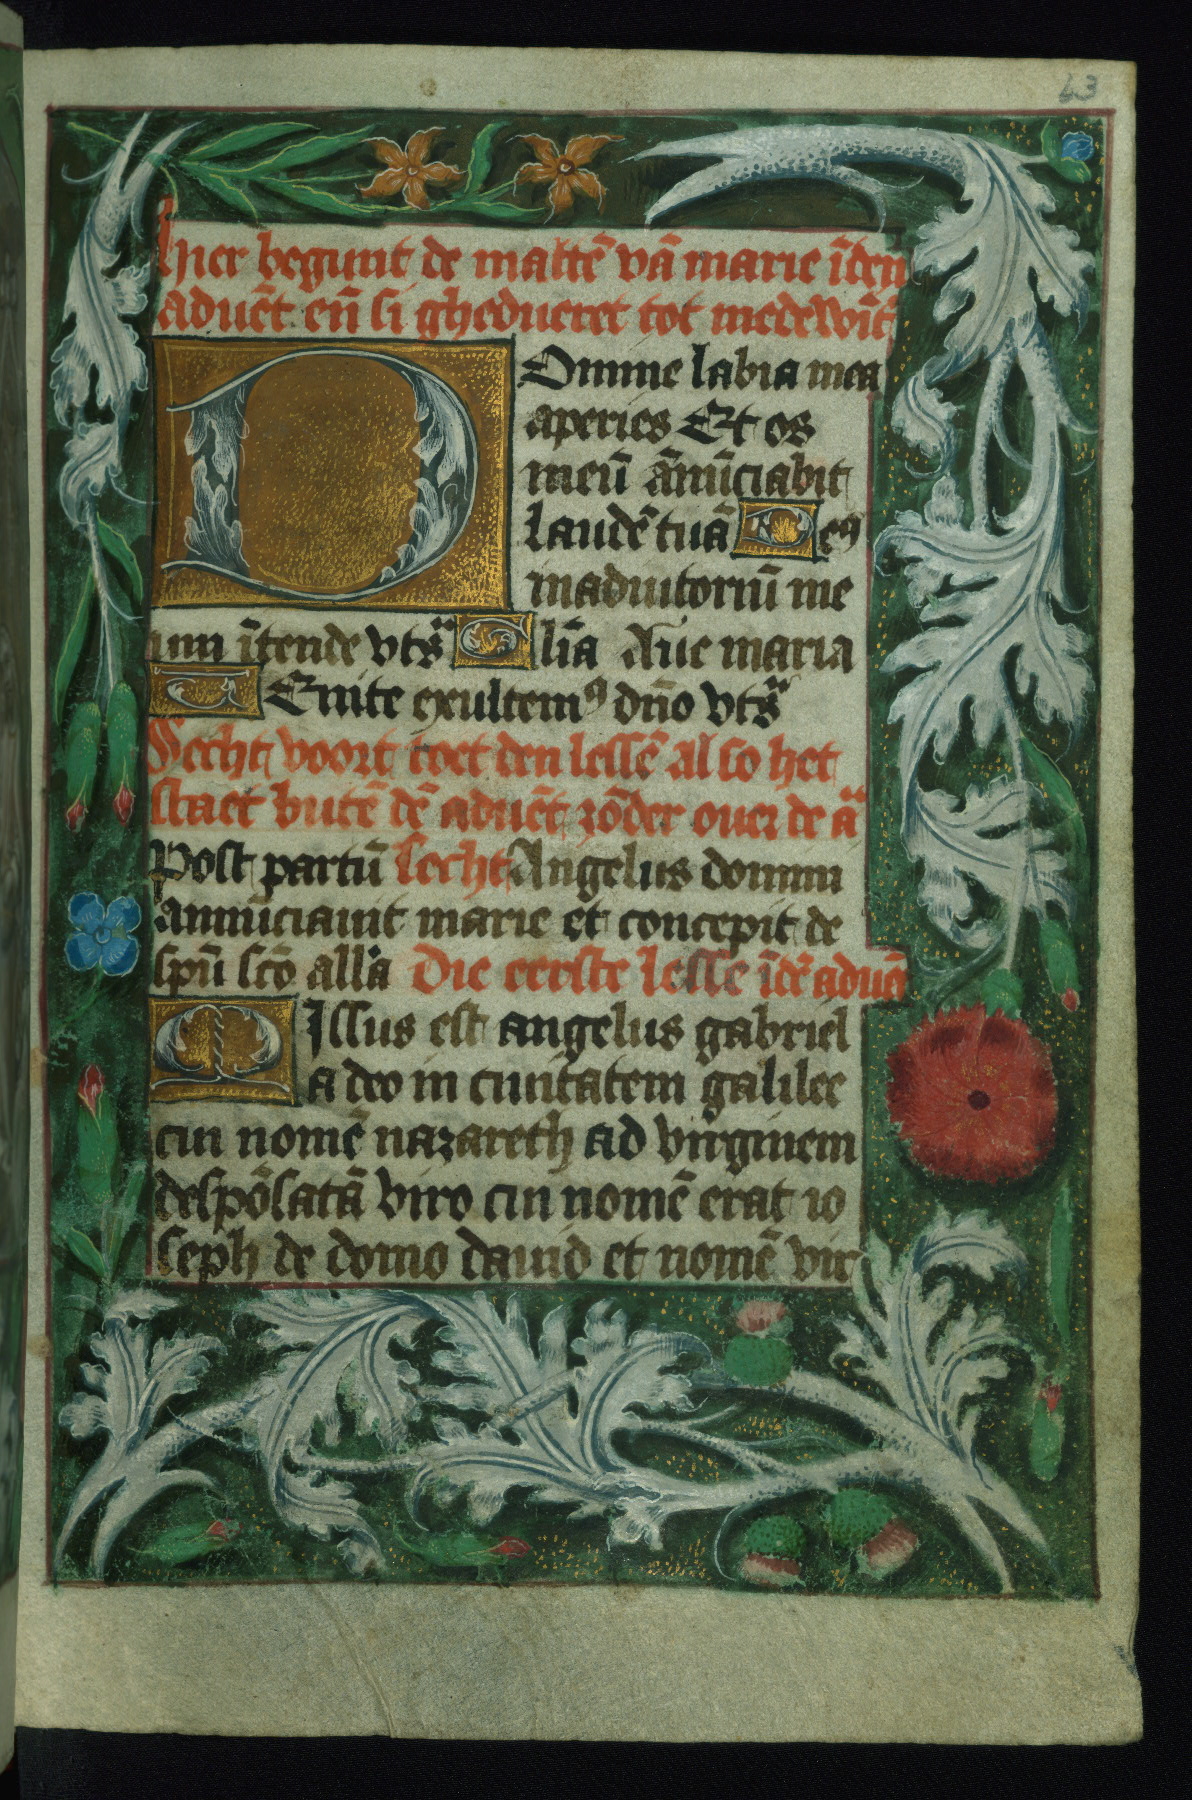 43
hier begunt de mattē vā marie īden
aduēt eñ si ghedueret tot medewīt
Domine labia mea
aperies Et os
meū ānūciabit
laudē tuā Deꝰ
inadiutoriū me
um ītende vts Glīa Aue maria
VEnite exultemꝰ dño vts
Secht voort toet den lessē al so het
staet butē dē aduēt zōder ouer de ā
Post partū secht Angelus domini
annūciauit marie et concepit de
spū sctō allā Die eerste lesse īdē aduēt
MIssus est angelus gabriel
a deo in ciuitatem galilee
cui nomē nazareth ad virginem
despōsatā viro cui nomē erat io
seph de domo dauid et nomē vir